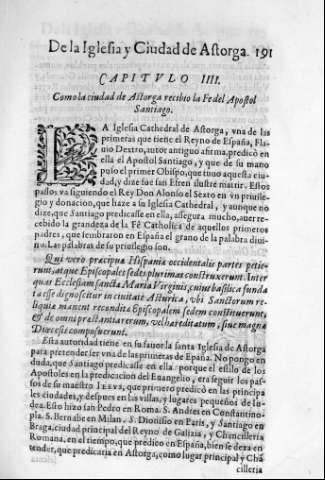 De la Iglesia y Ciudad de Astorga. 191
CAPITVLO IIII.
Como la ciudad de Astorga recibio la Fe del Apostol
Santiago.
LA Iglesia Cathedral de Astorga, vna de las
primeras que tiene el Reyno de España, Fla
uio Dextro, autor antiguo afirma, predicò en
ella el Apostol Santiago, y que de su mano
puso el primer Obispo, que tuuo aquesta ciu
dad, y dize fue san Efren ilustre martir. Estos
passos va siguiendo el Rey Don Alonso el Sexto en vn priuile-
gio y donacion, que haze a su Iglesia Cathedral, y aunque no
dize, que Santiago predicasse en ella, assegura mucho, auer re-
cebido la grandeza de la Fè Catholica de aquellos primeros
padres, que sembraron en España el grano de la palabra diui-
na. Las palabras de su priuilegio son.
Qui vero præcipua Hispania occidentalis partes petie-
runt, atque Episcopales sedes plurimas construxerunt. Inter
quas Ecclesiam sanctæ Mariæ Virginis, cuius basilica funda
ta esse dignoscitur in ciuitate Asturica, vbi Sanctorum re-
liquiæ manent recondita Episcopalem sedem constituerunt,
& de omni præ tantiarum, vel hæreditatum, siue magna
Diœcesis composuerunt.
Esta autoridad tiene en su fauor la santa Iglesia de Astorga
para pretender ser vna de las primeras de España. No pongo en
duda, que Santiago predicasse en ella: porque el estilo de los
Apostoles en la predicacion del Euangelio, era seguir los pas-
sos de su maestro IESVS, que primero predicò en las principa
les ciudades, y despues en las villas, y lugares pequeños de la
dea. Esto hizo san Pedro en Roma. S. Andres en Constantino-
pla. S. Bernabe en Milan. S. Dionisio en Paris, y Santiago en
Braga, ciudad principal del Reyno de Galizia, y Chancilleria
Romana. en el tiempo, que predicò en España, bien se dexa en-
tender, que predicaria en Astorga, como lugar principal y Chã
cilleria